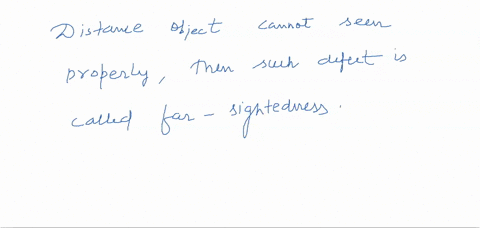 Distance object cannot seen
properly, then such defect is
called far - sightedness.